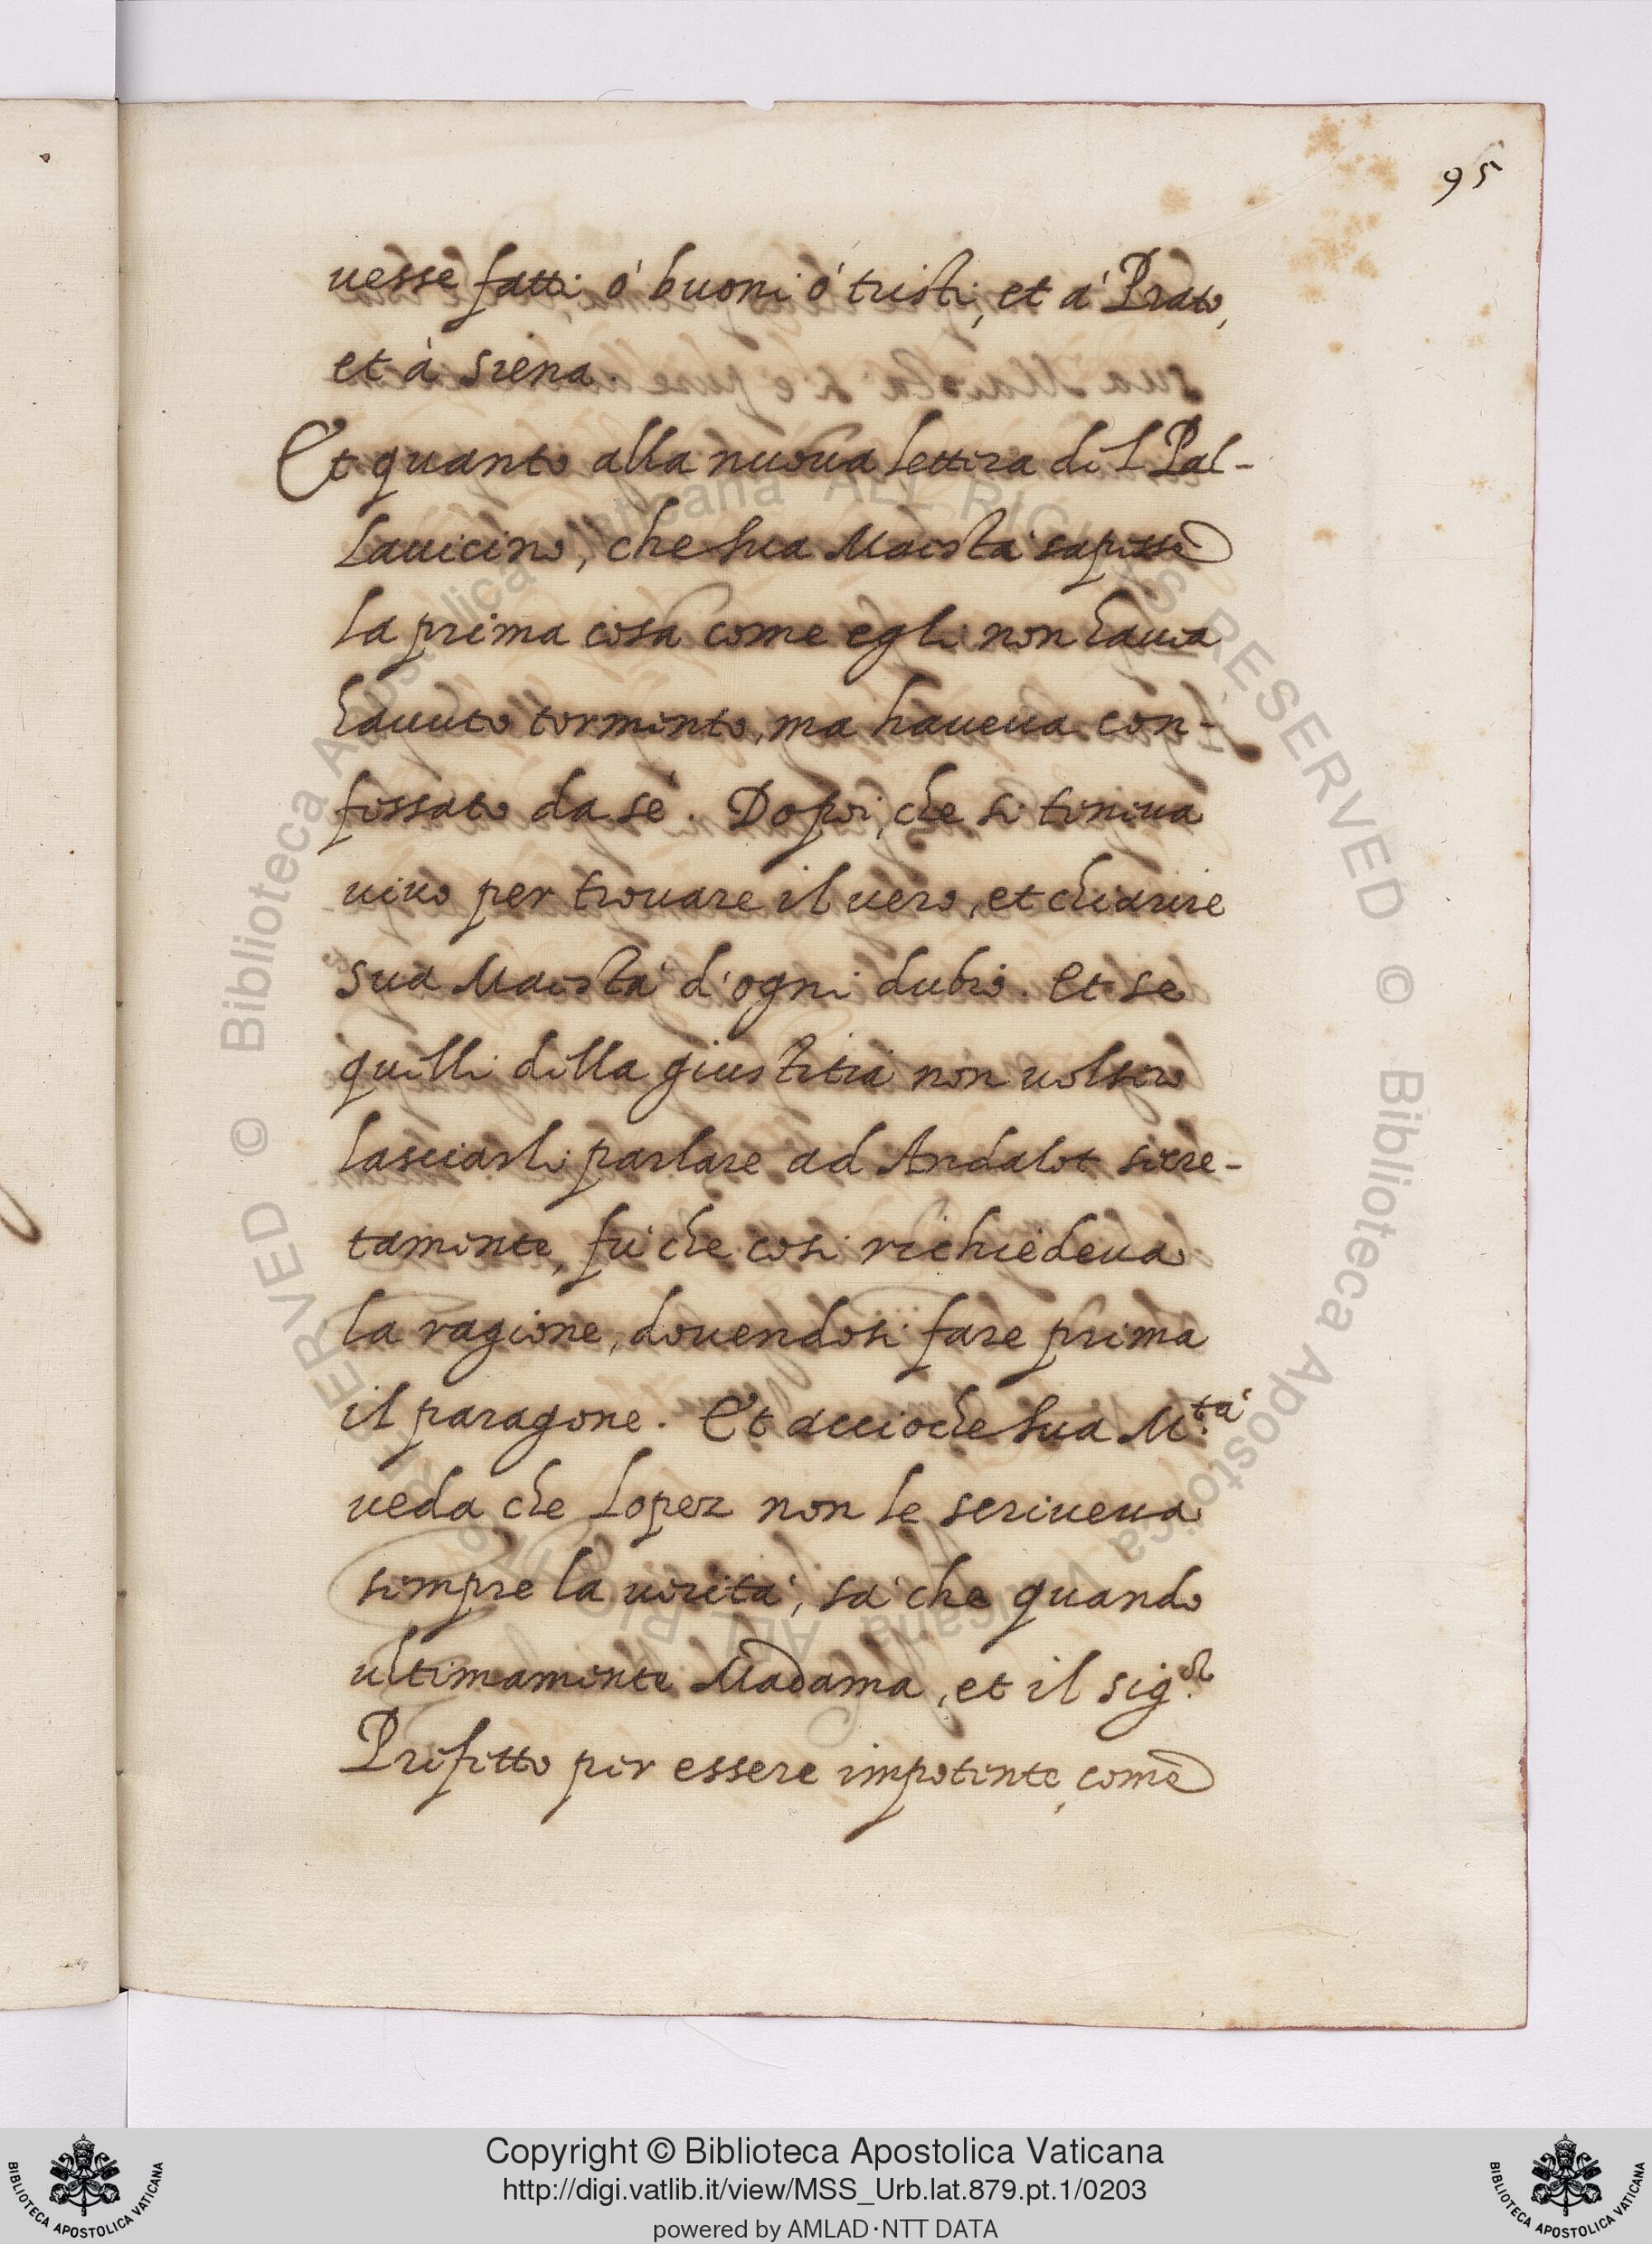 95
uesse fatti ò buoni ò tristi, et à Prato,
et à Siena.
Et quanto alla nuoua lettera del Pal-
lauicino, che sua Maestà sapesse
la prima cosa come egli non hauea
hauuto tormento, ma haueua con-
fessato da sè. Dopoi, che si teneua
uiuo per trouare il uero, et chiarire
sua Maestà d'ogni dubio. Et se
quelli della giustitia non uolsero
lasciarli parlare ad Andalot secre-
tamente, fù che cosi richiedeua
la ragione, douendosi fare prima
il paragone. Et accioche sua M.tà
ueda che Lopez non le scriueua
sempre la uerità, sà che quando
ultimamente Madama, et il sig.or
Prefetto per essere impotente, come
© Biblioteca Apostolica Vaticana ALL RIGHTS RESERVED © Biblioteca Apostolica Vaticana ALL RIGHTS RESERVED
Copyright © Biblioteca Apostolica Vaticana
http://digi.vatlib.it/view/MSS_Urb.lat.879.pt.1/0203
powered by AMLAD·NTT DATA
BIBLIOTECA APOSTOLICA VATICANA
BIBLIOTECA APOSTOLICA VATICANA